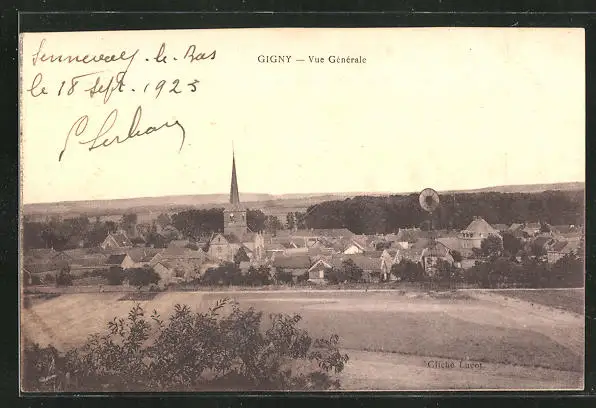 Sennevoy-le-Bas
le 18 Sept. 1923
GIGNY — Vue Générale
Cliché Lucot